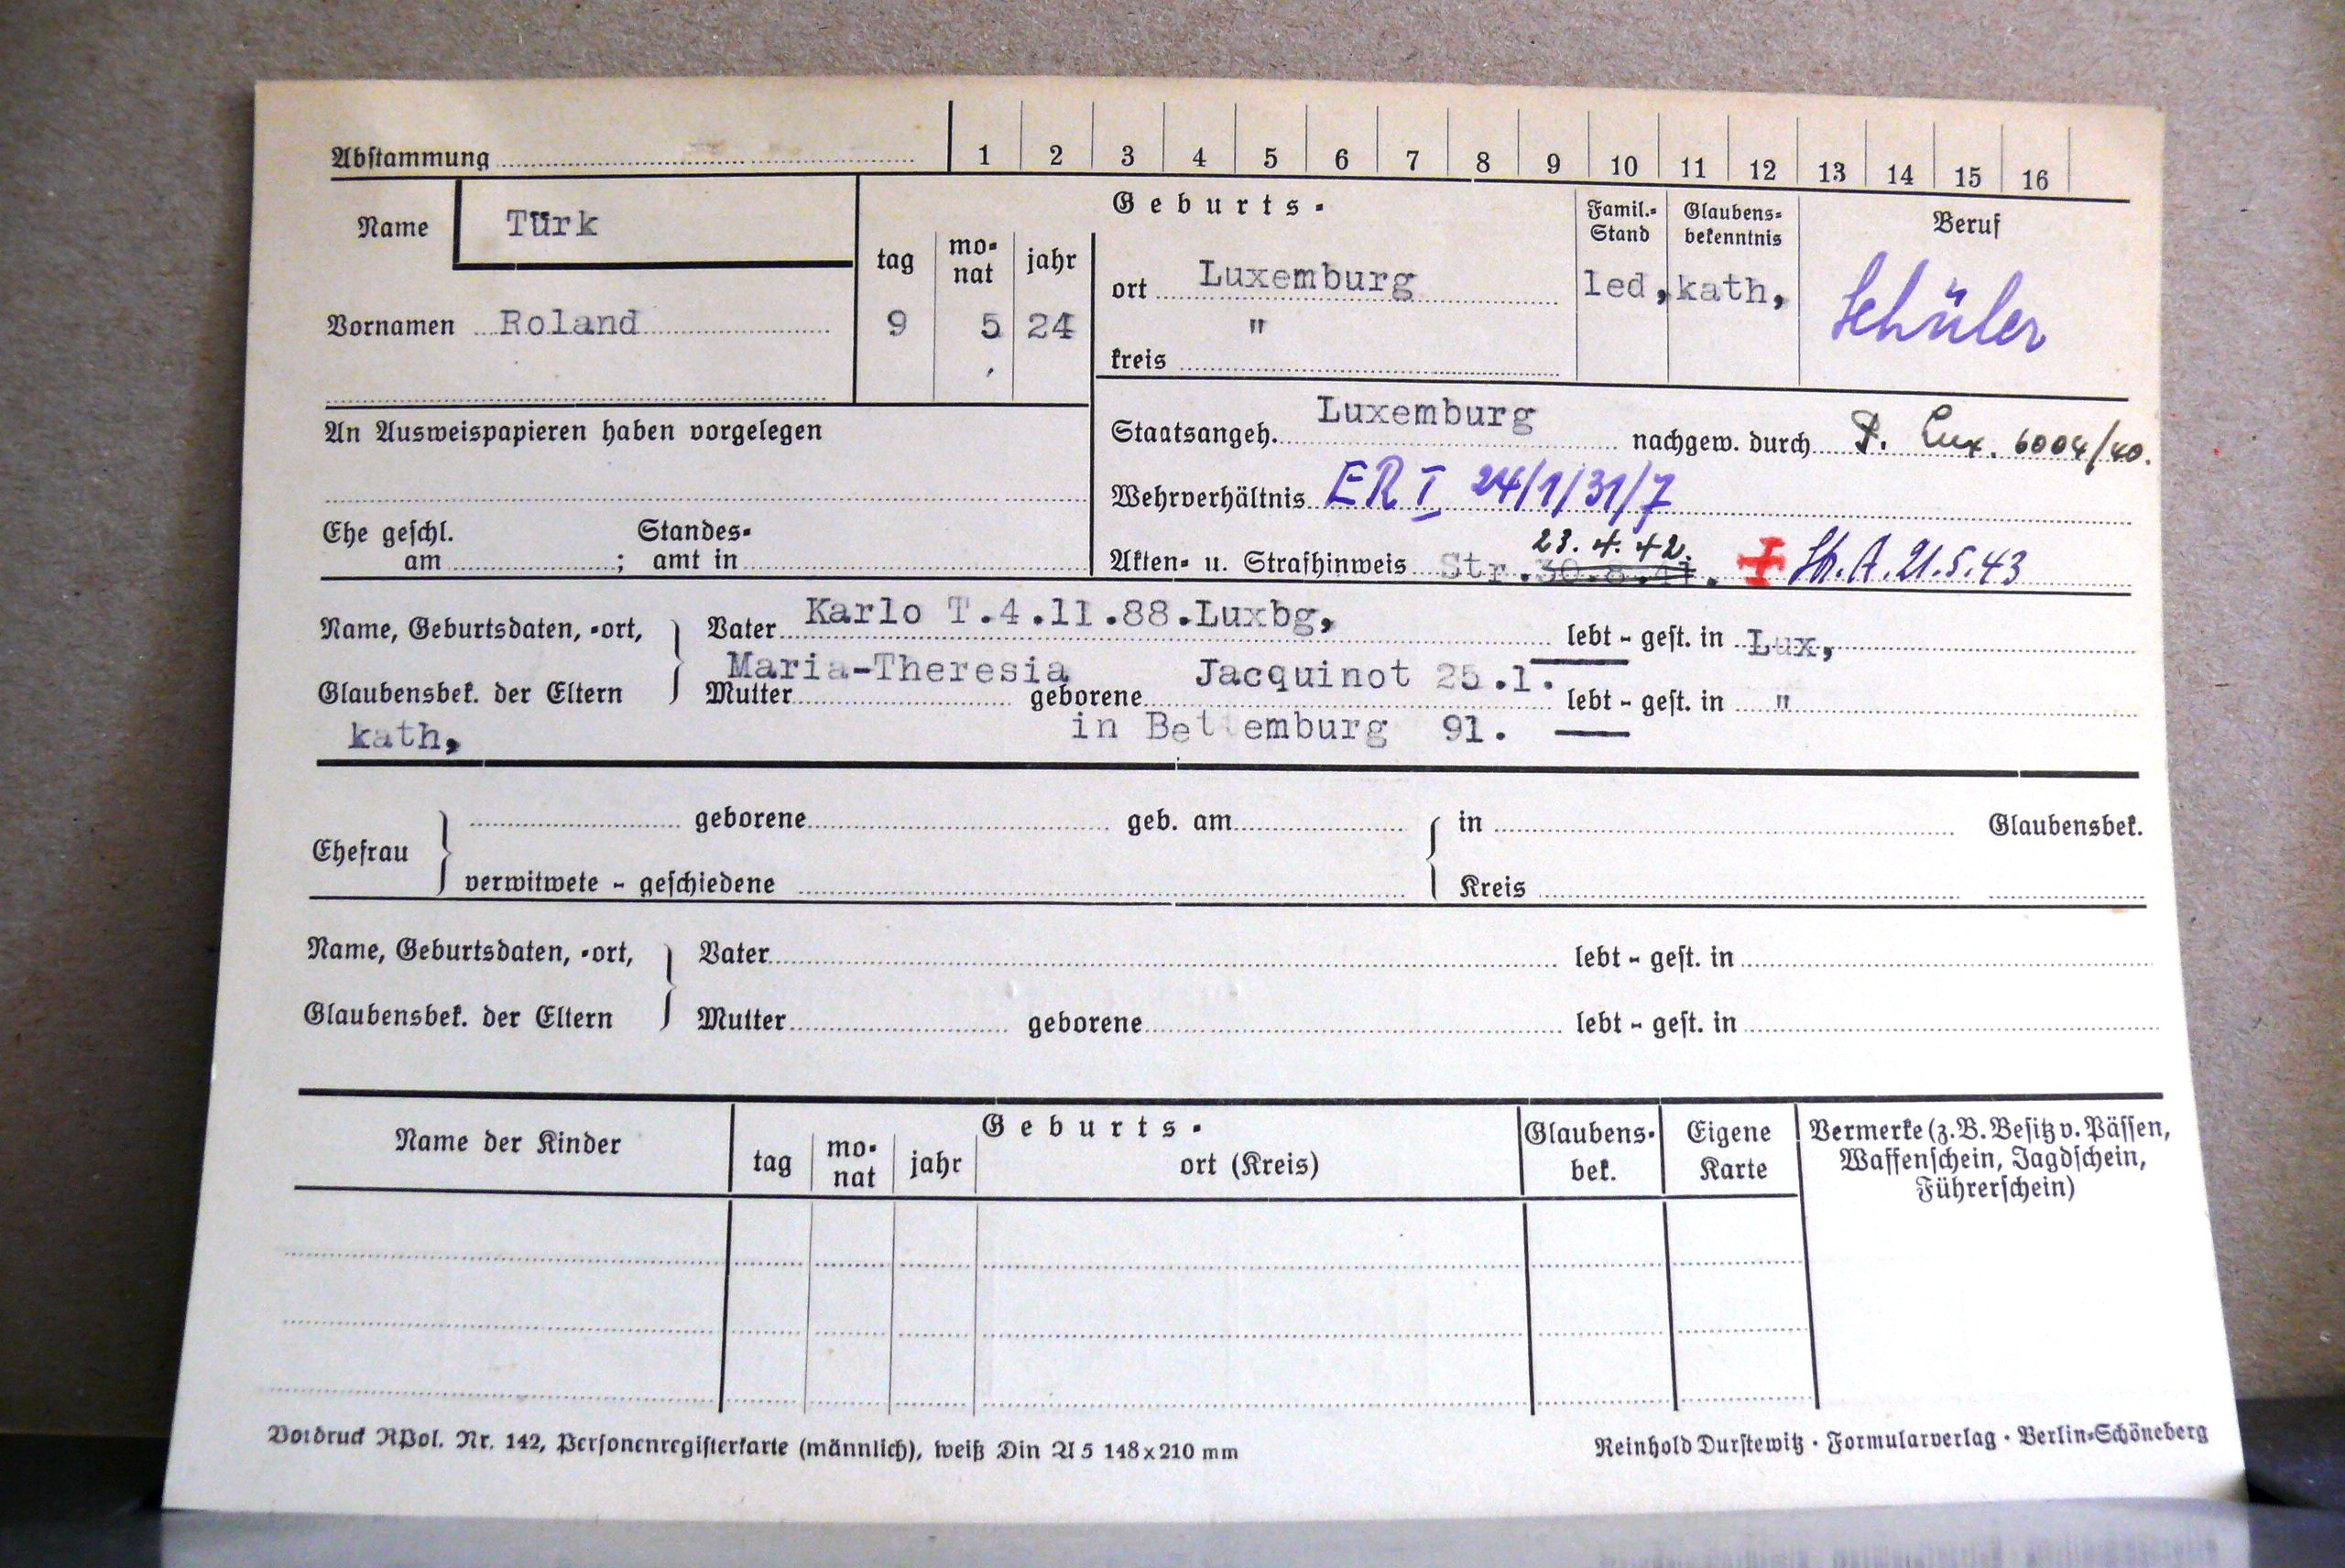 Abstammung 1 2 3 4 5 6 7 8 9 10 11 12 13 14 15 16
Name Türk
Vornamen Roland
Geburts-
tag monat jahr
9 5 24
ort Luxemburg
kreis "
Famil.-Stand
led,
Glaubensbekenntnis
kath,
Beruf
Schüler
An Ausweispapieren haben vorgelegen
Staatsangeh. Luxemburg nachgew. durch P. Lux. 6004/40.
Wehrverhältnis ER I 24/1/31/7
Ehe geschl. am ; Standesamt in
23.4.42.
Akten- u. Strafhinweis Str.30.8.41. + Str.A.21.5.43
Name, Geburtsdaten, -ort, Vater Karlo T.4.11.88.Luxbg, lebt - gest. in Lux,
Maria-Theresia Jacquinot 25.1.
Glaubensbek. der Eltern Mutter geborene lebt - gest. in "
kath, in Bettemburg 91.
Ehefrau geborene geb. am in Glaubensbek.
verwitwete - geschiedene Kreis
Name, Geburtsdaten, -ort, Vater lebt - gest. in
Glaubensbek. der Eltern Mutter geborene lebt - gest. in
Name der Kinder
Geburts-
tag monat jahr ort (Kreis)
Glaubensbek.
Eigene Karte
Vermerke (z. B. Besitz v. Pässen,
Waffenschein, Jagdschein,
Führerschein)
Vordruck RPol. Nr. 142, Personenregisterkarte (männlich), weiß Din A 5 148x210 mm
Reinhold Durstewitz · Formularverlag · Berlin-Schöneberg